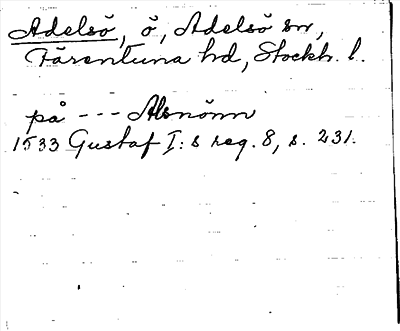 Adelsö, ö, Adelsö sn,
Färentuna hd, Stockh. l.
på --- Alsnönn
1533 Gustaf I:s reg. 8, s. 231.